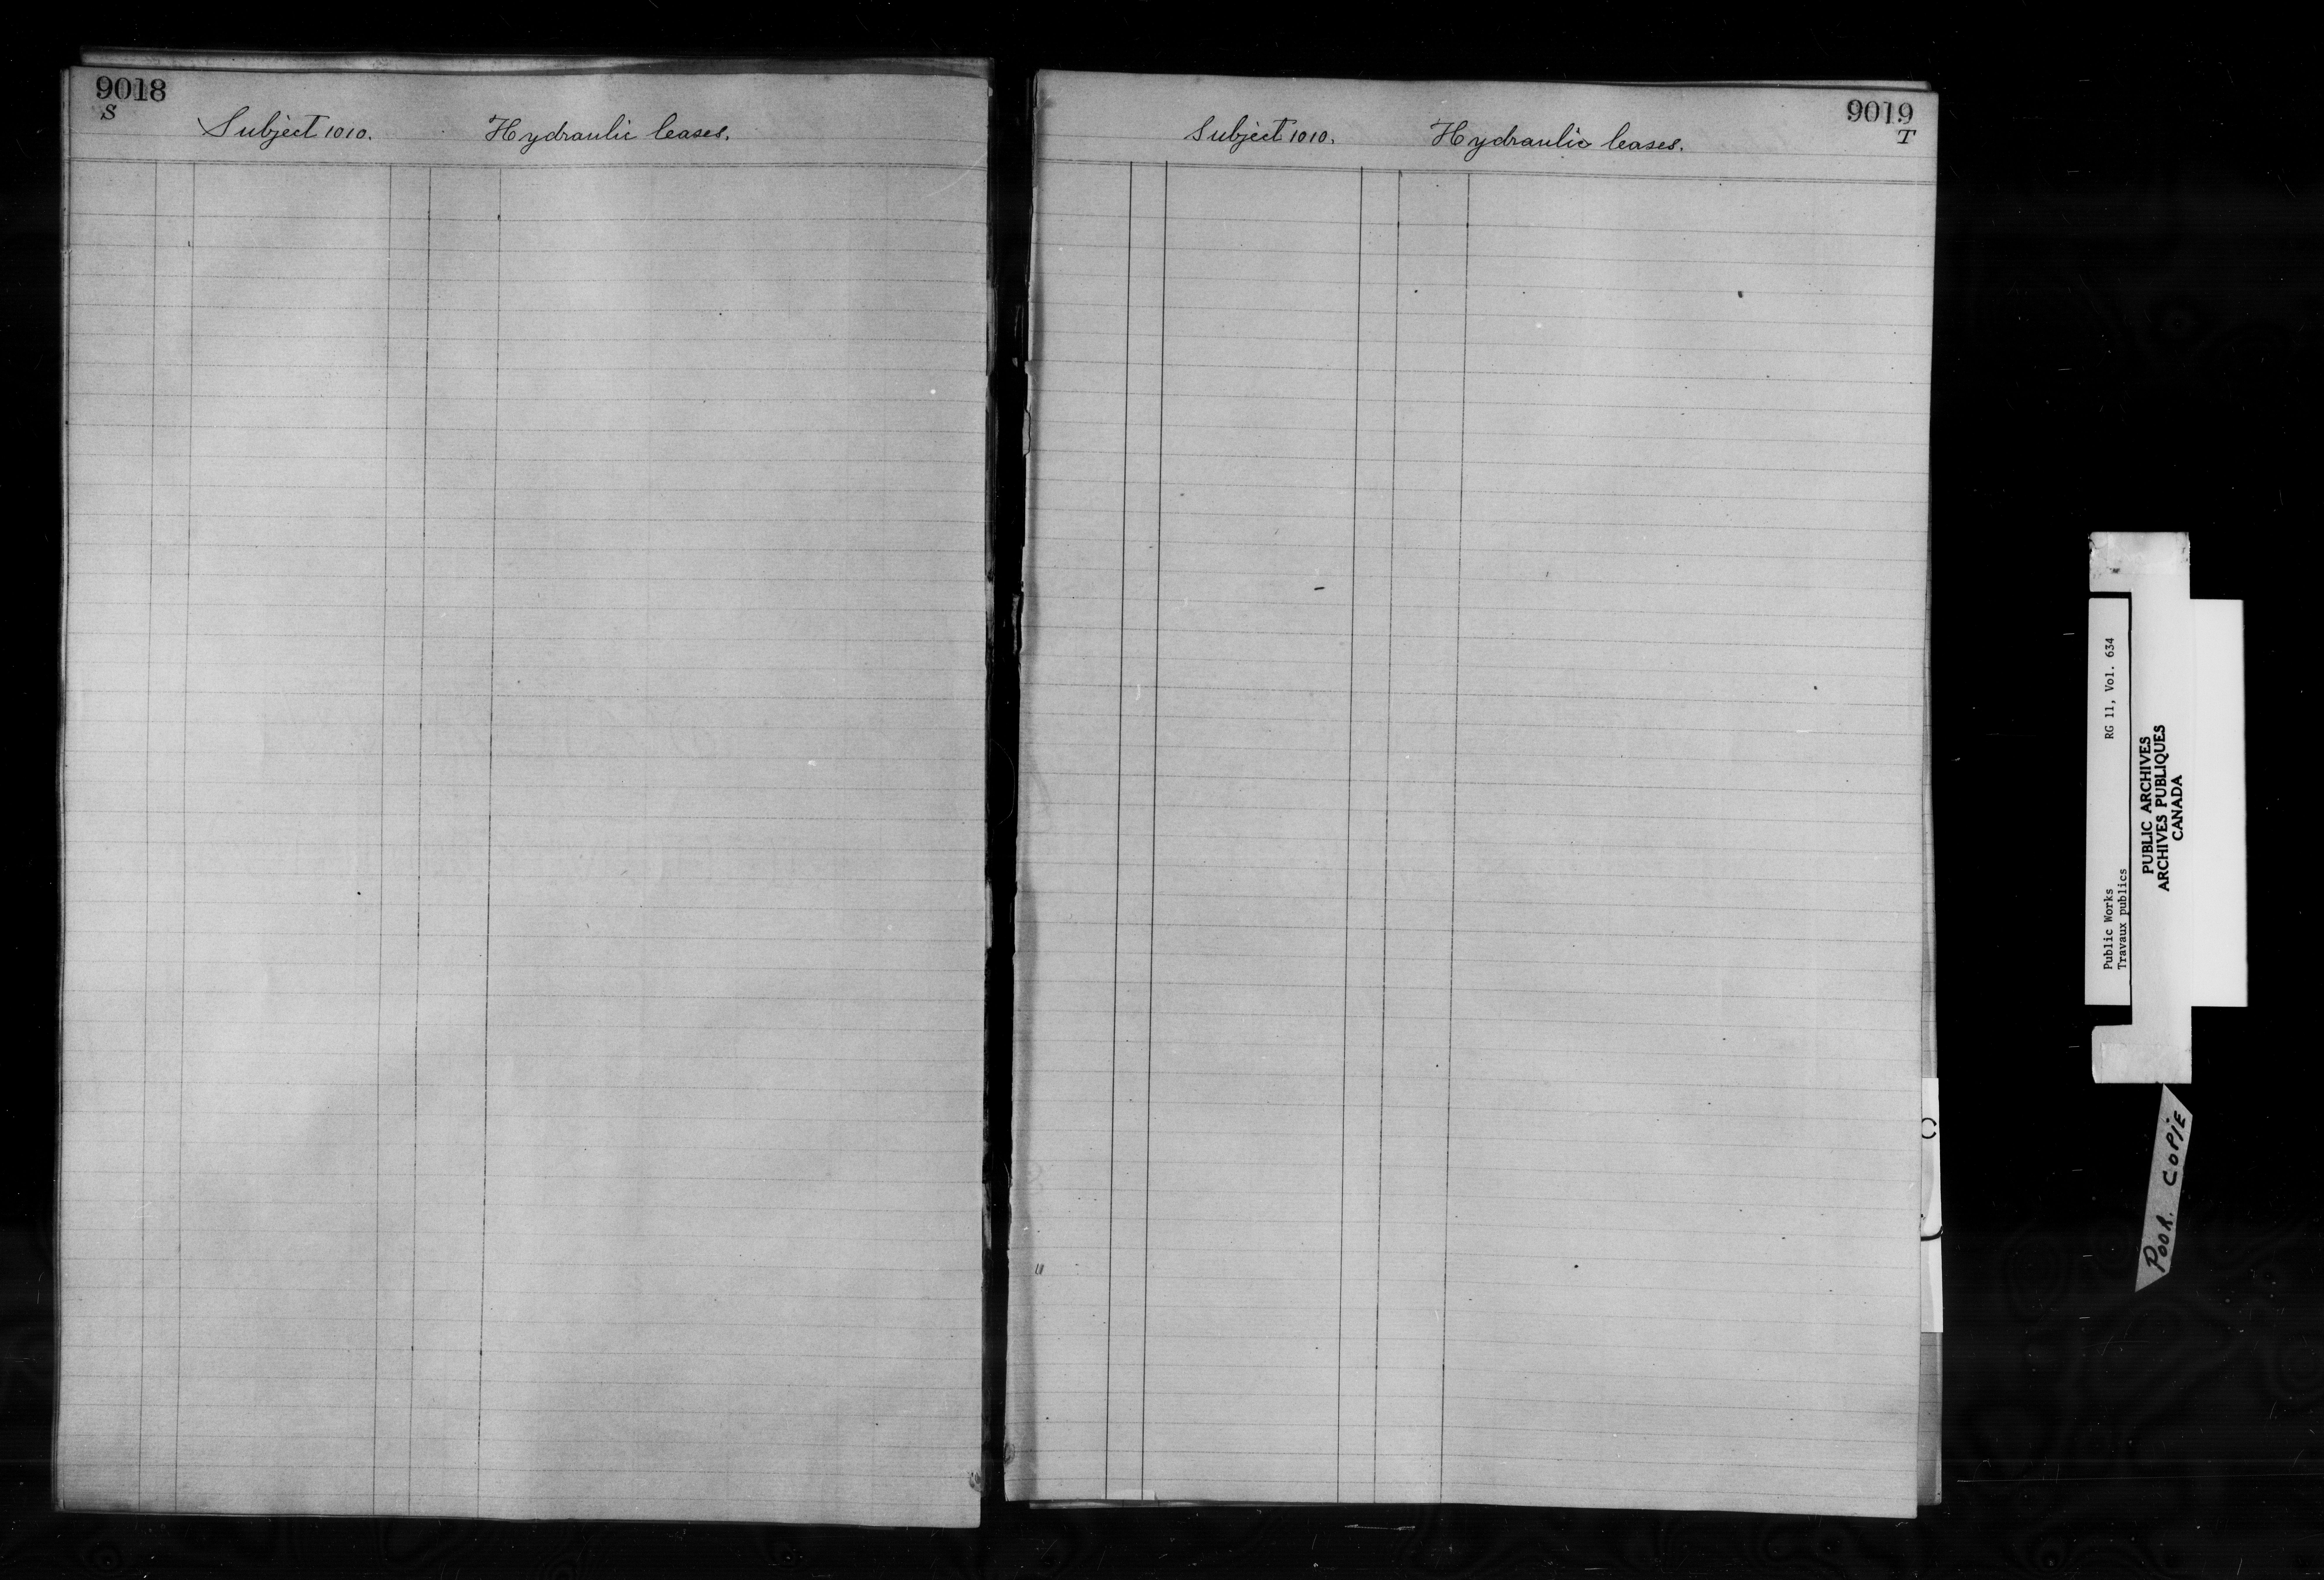 9018
S
Subject 1010. Hydraulic leases.
9019
T
Subject 1010. Hydraulic leases.
Public Works RG 11, Vol. 634
Travaux publics
PUBLIC ARCHIVES
ARCHIVES PUBLIQUES
CANADA
POOR. COPIE
C